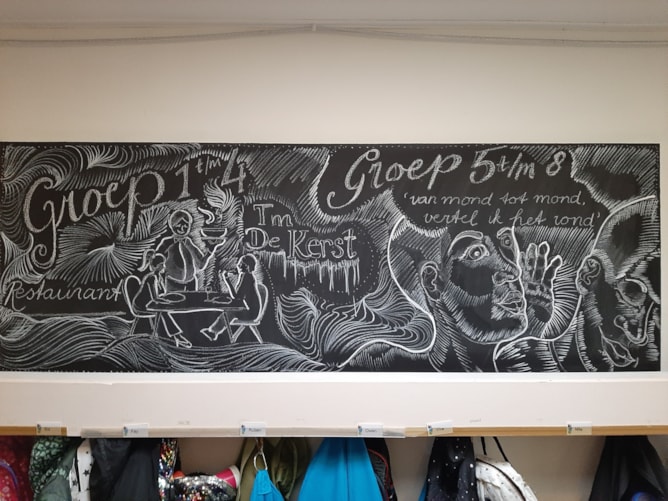 Groep 1 t/m 4
Restaurant
Tm
De Kerst
Groep 5 t/m 8
'van mond tot mond,
vertel ik het rond'